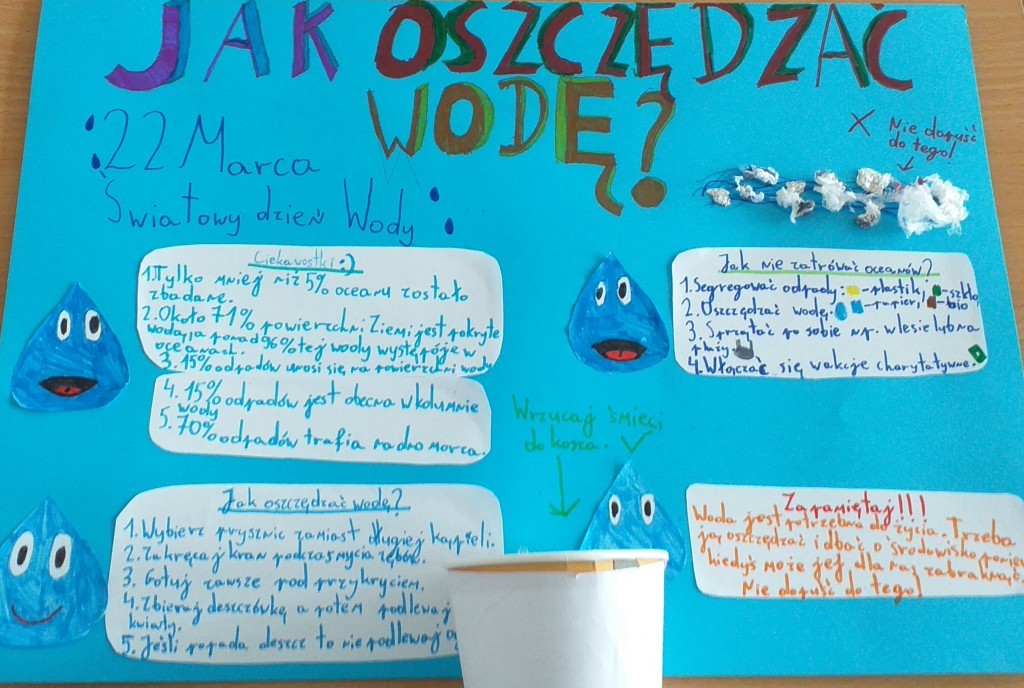 JAK OSZCZĘDZAĆ
WODĘ?
22 Marca
Światowy dzień Wody
X Nie dopuść
do tego!
Ciekawostki :)
1. Tylko mniej niż 5% oceanu zostało
zbadane.
2. Około 71% powierzchni Ziemi jest pokryte
wodą, a ponad 96% tej wody występóje w
oceanach.
3. 15% odpadów unosi się na powierzchni wody
4. 15% odpadów jest obecna w kolumnie
wody
5. 70% odpadów trafia na dno morza.
Jak nie zatrówać oceanów?
1. Segregować odpady: -plastik, -szkło,
2. Oszczędzać wodę. -papier, -bio
3. Sprzątać po sobie np. w lesie lub na
plaży
4. Włączać się w akcje charytatywne.
Wrzucaj śmieci
do kosza.
Jak oszczędzać wodę?
1. Wybierz prysznic zamiast długiej kąpieli.
2. Zakręcaj kran podczas mycia zębów.
3. Gotuj zawsze pod przykryciem.
4. Zbieraj deszczówkę a potem podlewaj
kwiaty.
5. Jeśli popada deszcz to nie podlewaj
Zapamiętaj!!!
Woda jest potrzebna do życia. Trzeba
ją oszczędzać i dbać o środowisko
kiedyś może jej dla nas zabraknąć
Nie dopuść do tego!